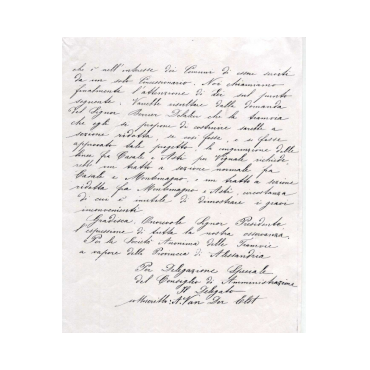 che è nell'interesse dei Comuni di essere serviti
da un solo Concessionario. Noi chiamiamo
finalmente l'attenzione di Lei sul punto
seguente. Verrebbe risultare dalla domanda
del Signor Ferdinando che la tramvia
che egli si propone di costruire sarebbe a
sezione ridotta, se così fosse, e si fosse
approvato tale progetto, la congiunzione delle
linee fra Casale e Asti per Vignale richiede
rebbe un tratto a sezione normale fra
Casale e Montemagno, e un tratto a sezione
ridotta fra Montemagno e Asti, circostanza
di cui è inutile di dimostrare i gravi
inconvenienti.
Gradisca, Onorevole Signor Presidente
l'espressione di tutta la nostra osservanza.
Per la Società Anonima delle Tramvie
a vapore della Provincia di Alessandria
Per Delegazione Speciale
del Consiglio di Amministrazione
Il Delegato
A. Van Der Elst